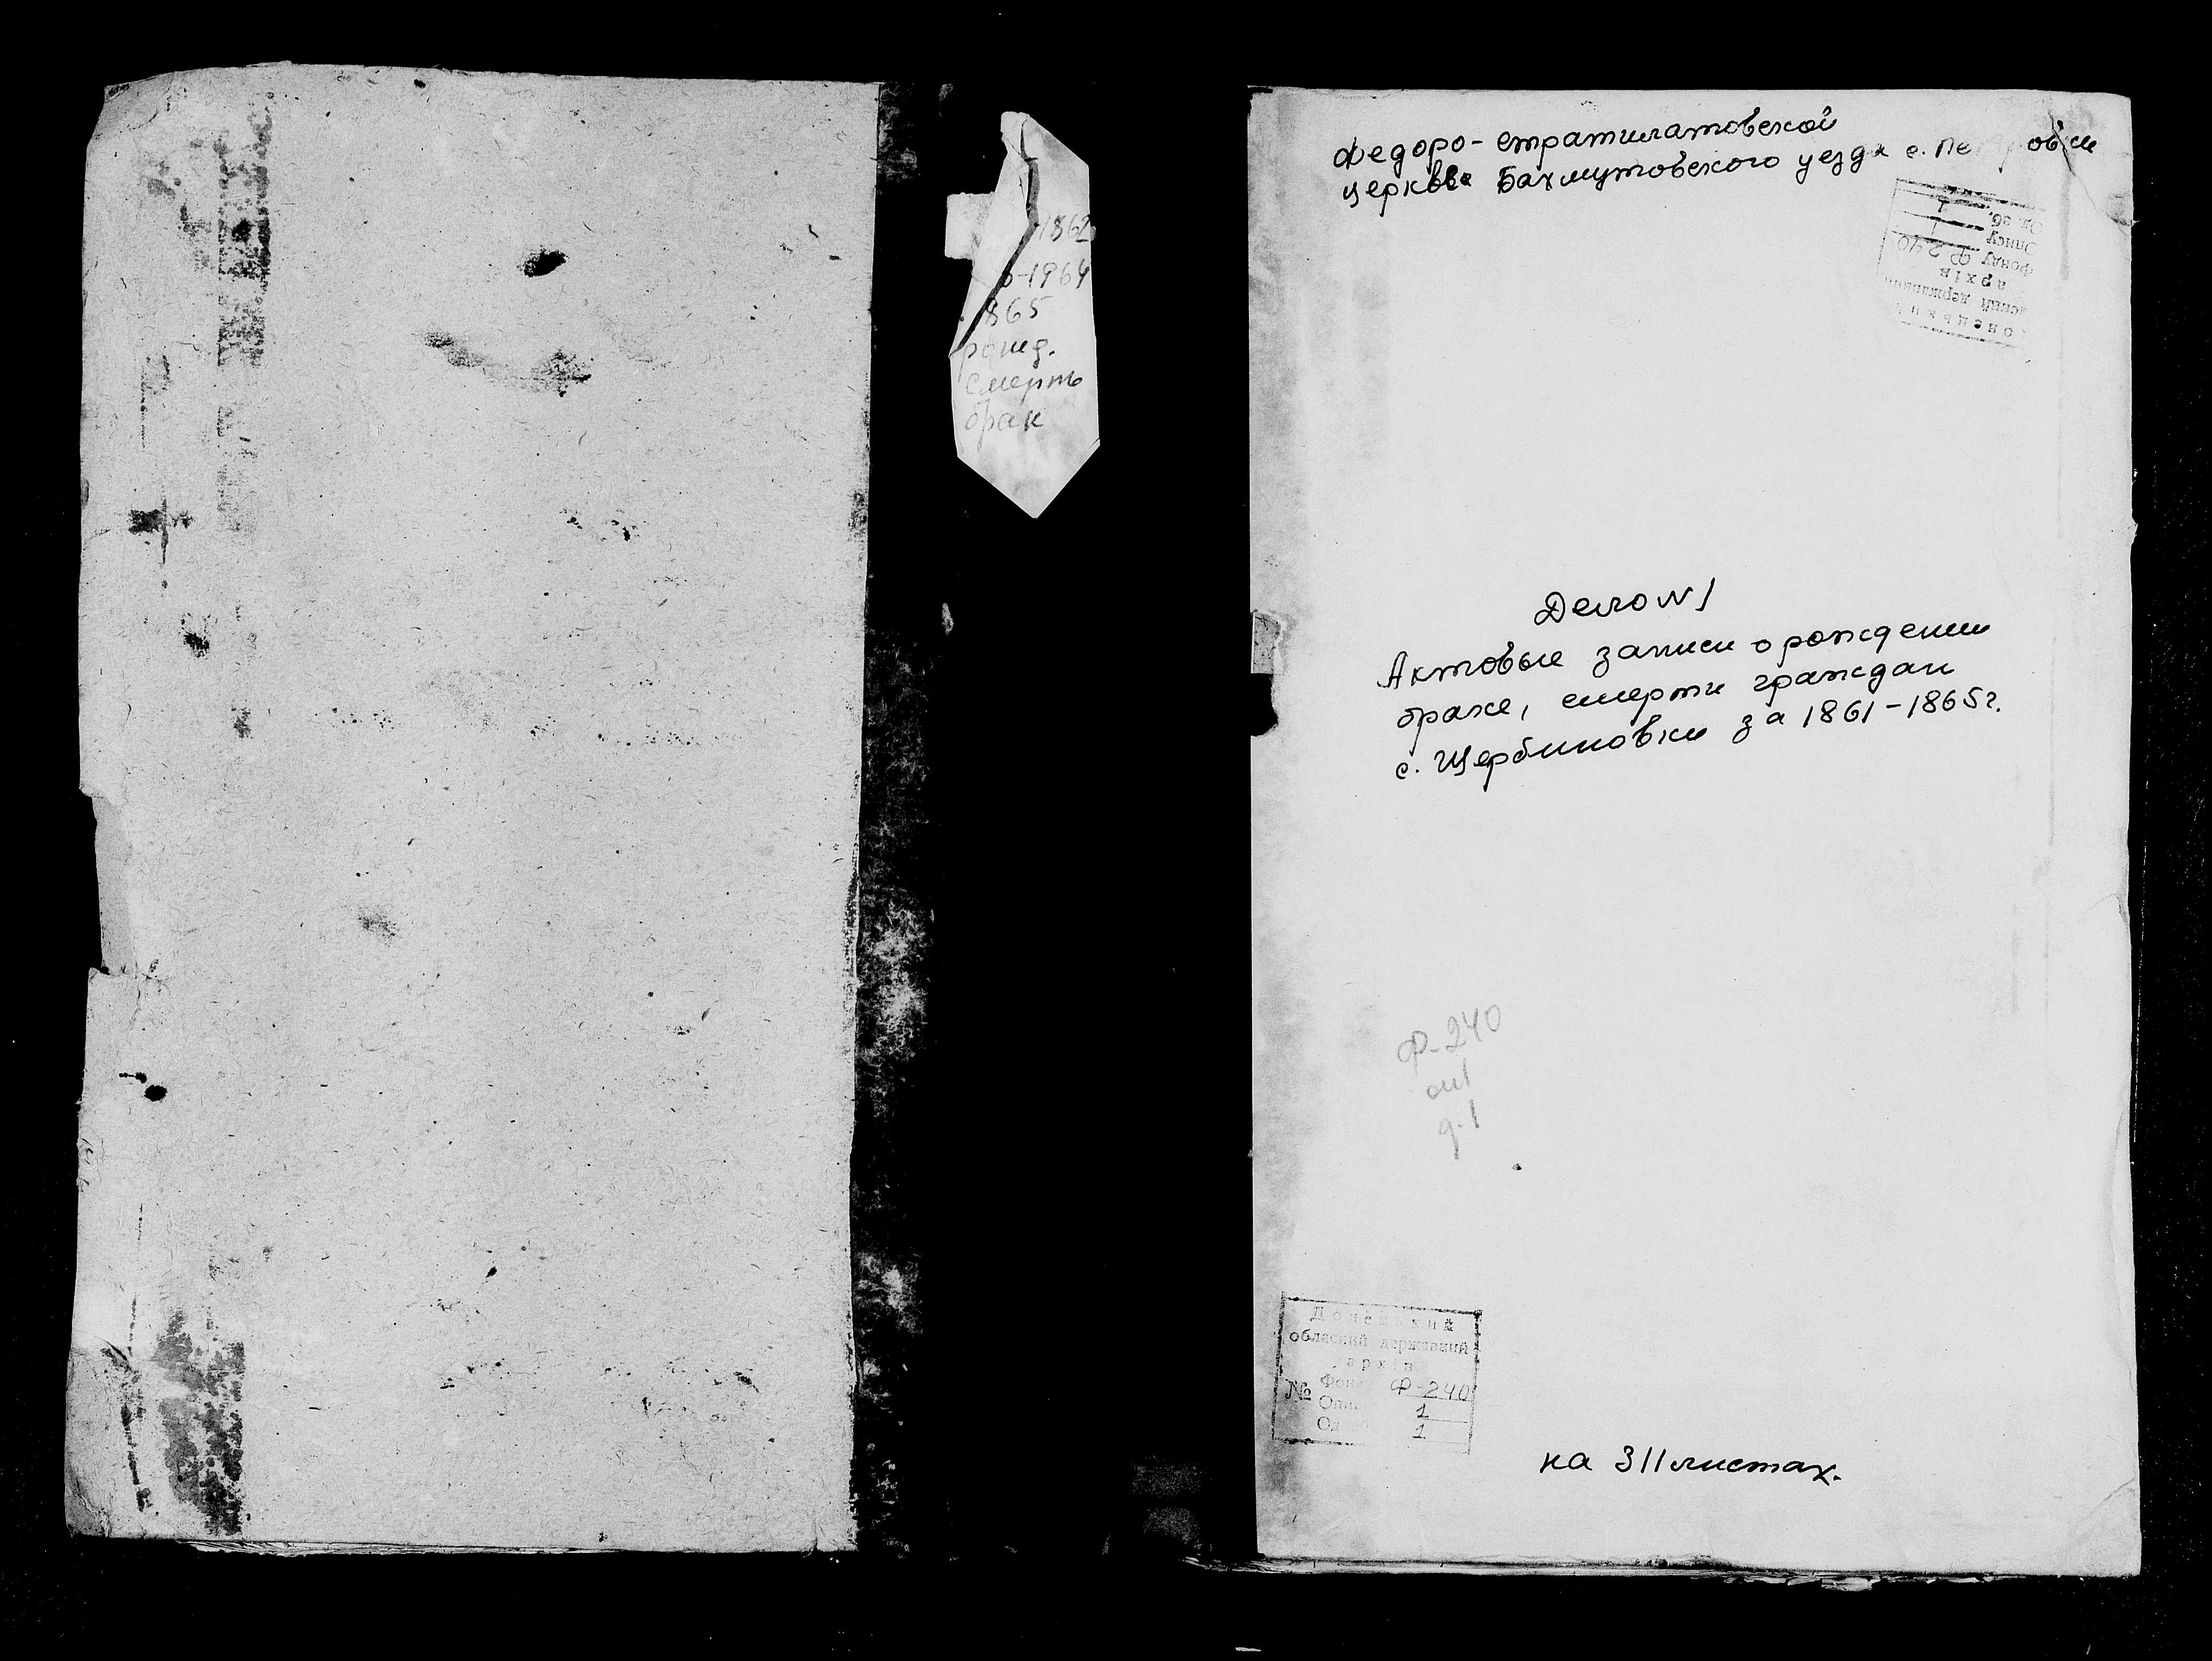 1862
-1964
865
рожд.
смерть
брак
Федоро-стратилатовской
церквве Бахмутовского уезда с.
Донецький
обласний державний
архів
фонду Ф 240
Опису 1
Од. зб. 1
Дело N1
Актовые записи о рождении
браке, смерти граждан
с. Щербиновки за 1861-1865г.
Ф-240
оп1
д.1
Донецький
обласний державний
архів
№ Фон Ф-240
Опи 1
Од 1
на 311 листах.